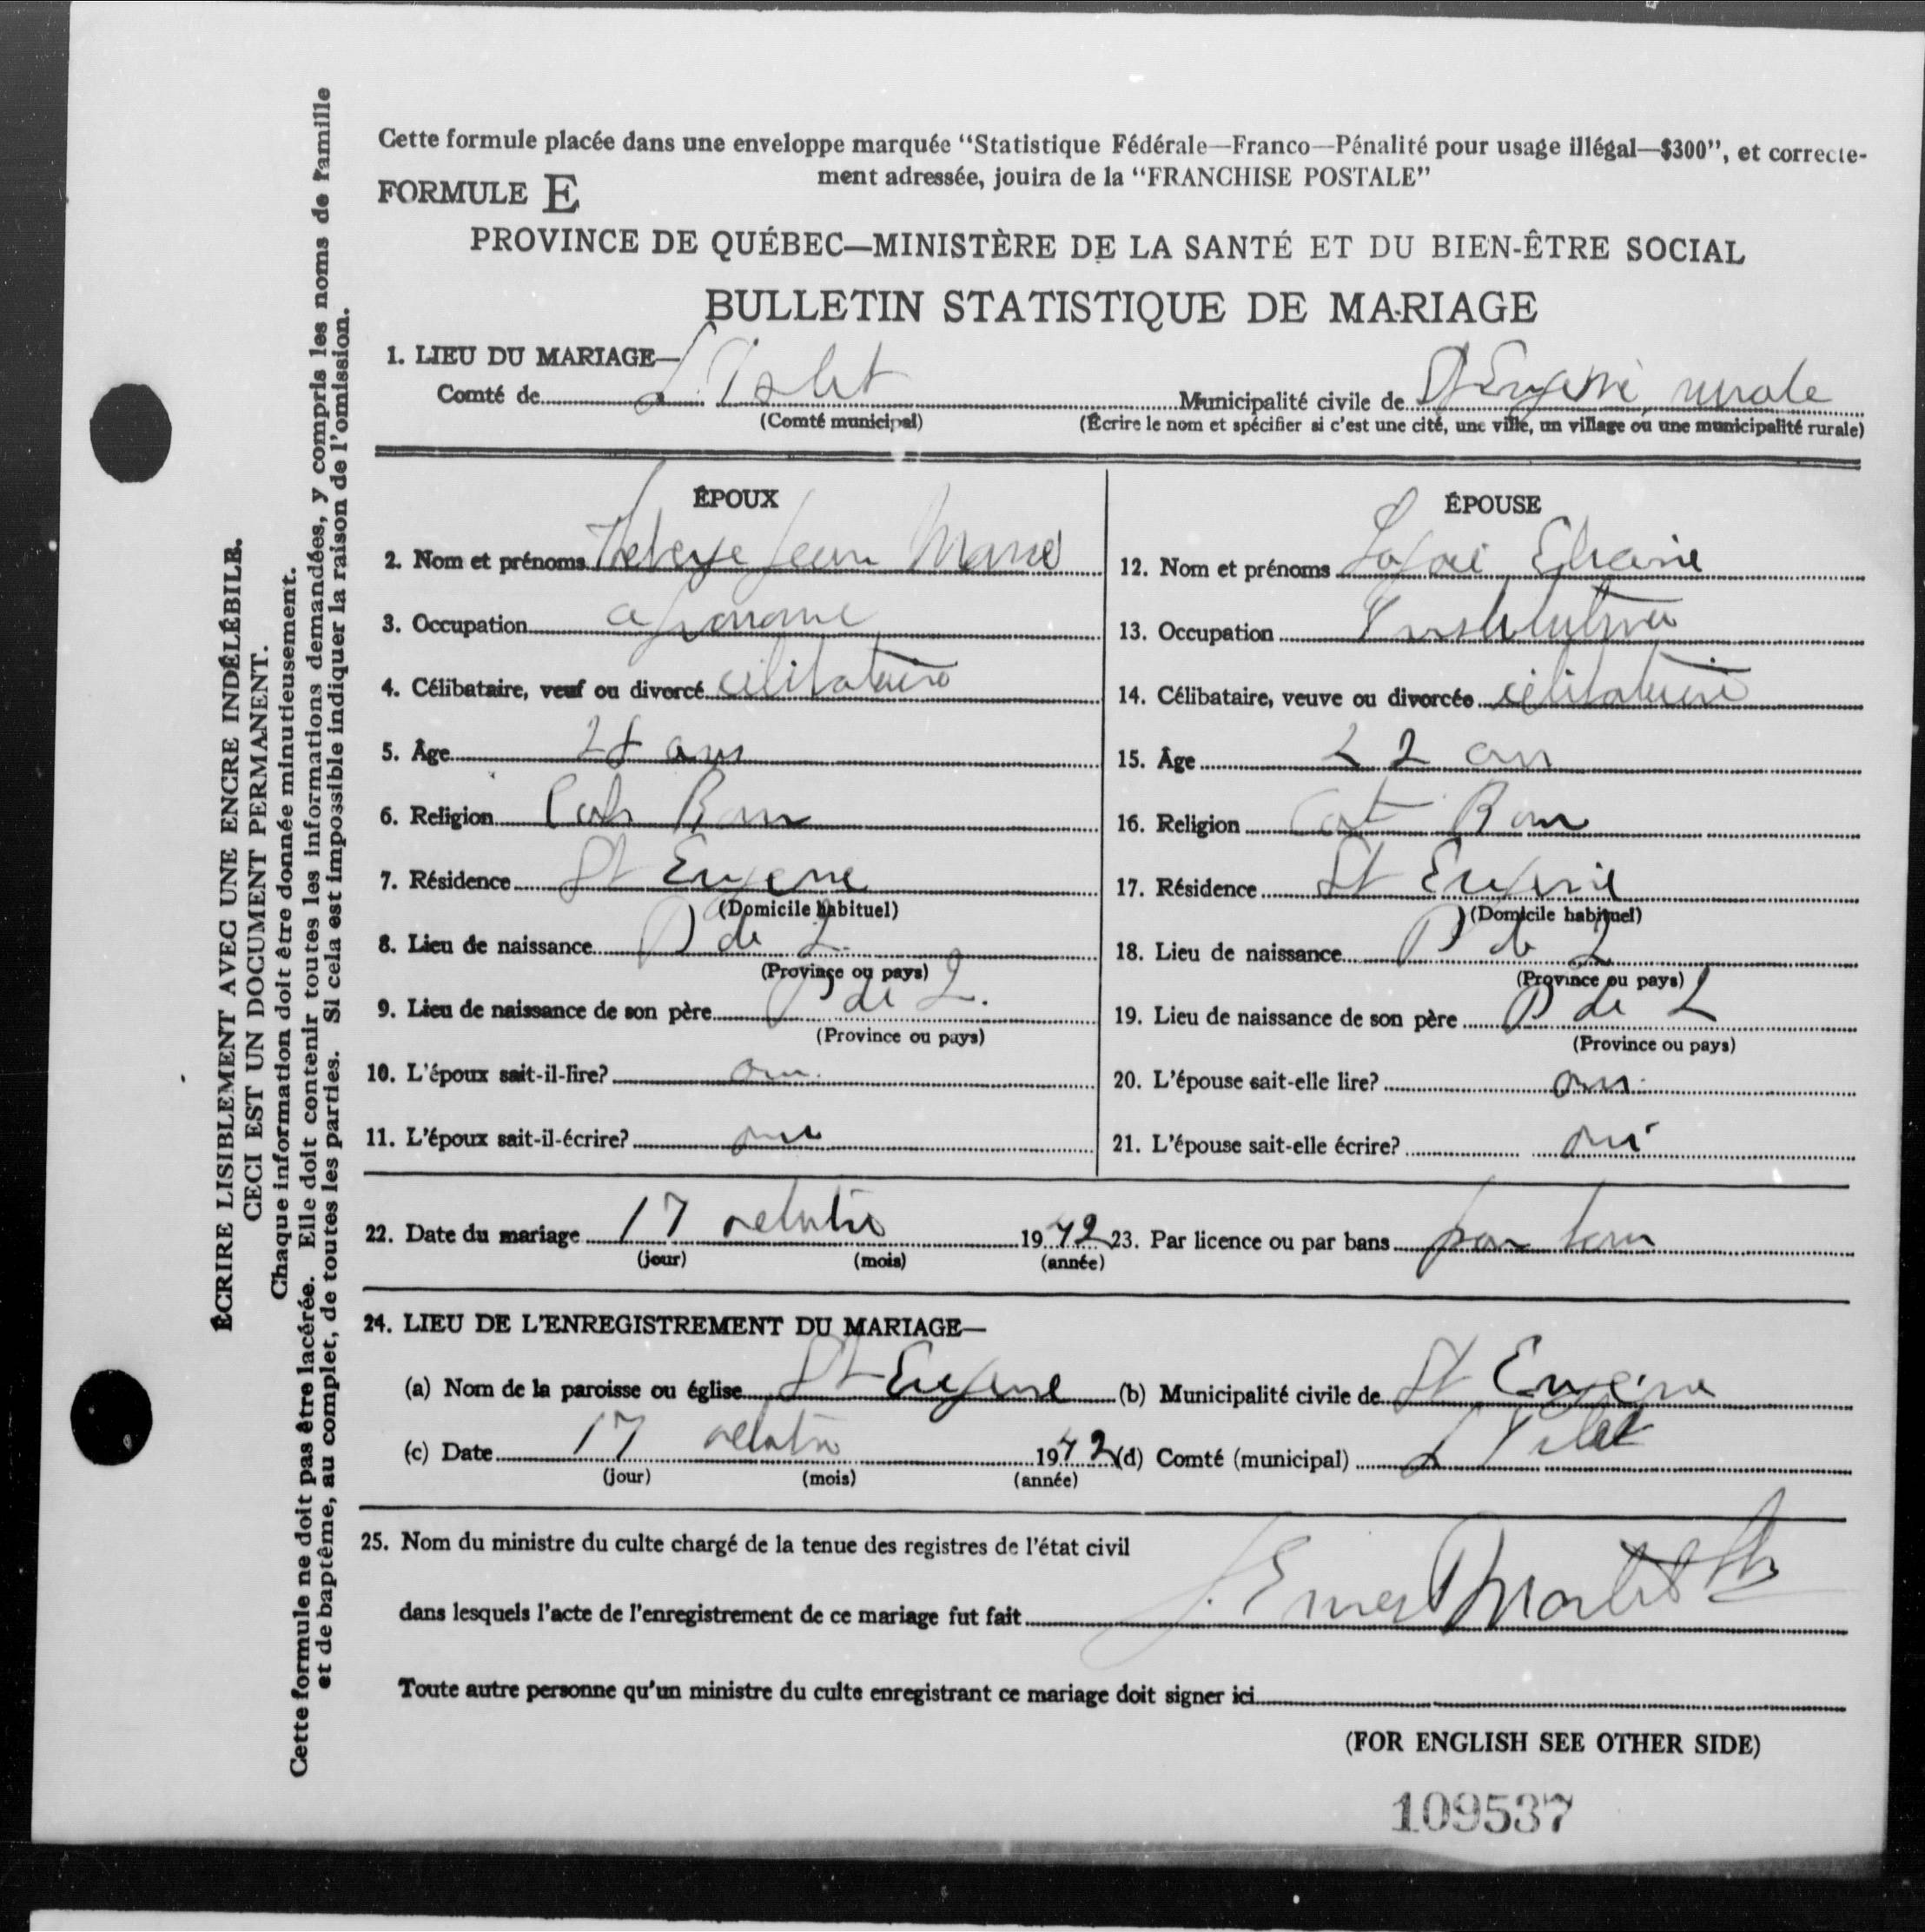 Cette formule placée dans une enveloppe marquée "Statistique Fédérale—Franco—Pénalité pour usage illégal—$300", et correcte-
ment adressée, jouira de la "FRANCHISE POSTALE"
FORMULE E
PROVINCE DE QUÉBEC—MINISTÈRE DE LA SANTÉ ET DU BIEN-ÊTRE SOCIAL
BULLETIN STATISTIQUE DE MARIAGE
1. LIEU DU MARIAGE—
Comté de L'Islet Municipalité civile de St Eugène rurale
(Comté municipal) (Écrire le nom et spécifier si c'est une cité, une ville, un village ou une municipalité rurale)
ÉPOUX
2. Nom et prénoms Jean Marie
3. Occupation agronome
4. Célibataire, veuf ou divorcé célibataire
5. Âge ans
6. Religion Cath Rom
7. Résidence St Eugene
(Domicile habituel)
8. Lieu de naissance P de Q.
(Province ou pays)
9. Lieu de naissance de son père P de Q.
(Province ou pays)
10. L'époux sait-il-lire? oui
11. L'époux sait-il-écrire? oui
ÉPOUSE
12. Nom et prénoms
13. Occupation Institutrice
14. Célibataire, veuve ou divorcée célibataire
15. Âge 22 ans
16. Religion Cat Rom
17. Résidence St Eugene
(Domicile habituel)
18. Lieu de naissance P de Q
(Province ou pays)
19. Lieu de naissance de son père P de Q
(Province ou pays)
20. L'épouse sait-elle lire? oui
21. L'épouse sait-elle écrire? oui
22. Date du mariage 17 octobre 1942 23. Par licence ou par bans par bans
(jour) (mois) (année)
24. LIEU DE L'ENREGISTREMENT DU MARIAGE—
(a) Nom de la paroisse ou église St Eugene (b) Municipalité civile de St Eugène
(c) Date 17 octobre 1942 (d) Comté (municipal) L'Islet
(jour) (mois) (année)
25. Nom du ministre du culte chargé de la tenue des registres de l'état civil
dans lesquels l'acte de l'enregistrement de ce mariage fut fait J. Ernest
Toute autre personne qu'un ministre du culte enregistrant ce mariage doit signer ici
(FOR ENGLISH SEE OTHER SIDE)
109537
ÉCRIRE LISIBLEMENT AVEC UNE ENCRE INDÉLÉBILE.
CECI EST UN DOCUMENT PERMANENT.
Chaque information doit être donnée minutieusement.
Cette formule ne doit pas être lacérée. Elle doit contenir toutes les informations demandées, y compris les noms de famille
et de baptême, au complet, de toutes les parties. Si cela est impossible indiquer la raison de l'omission.